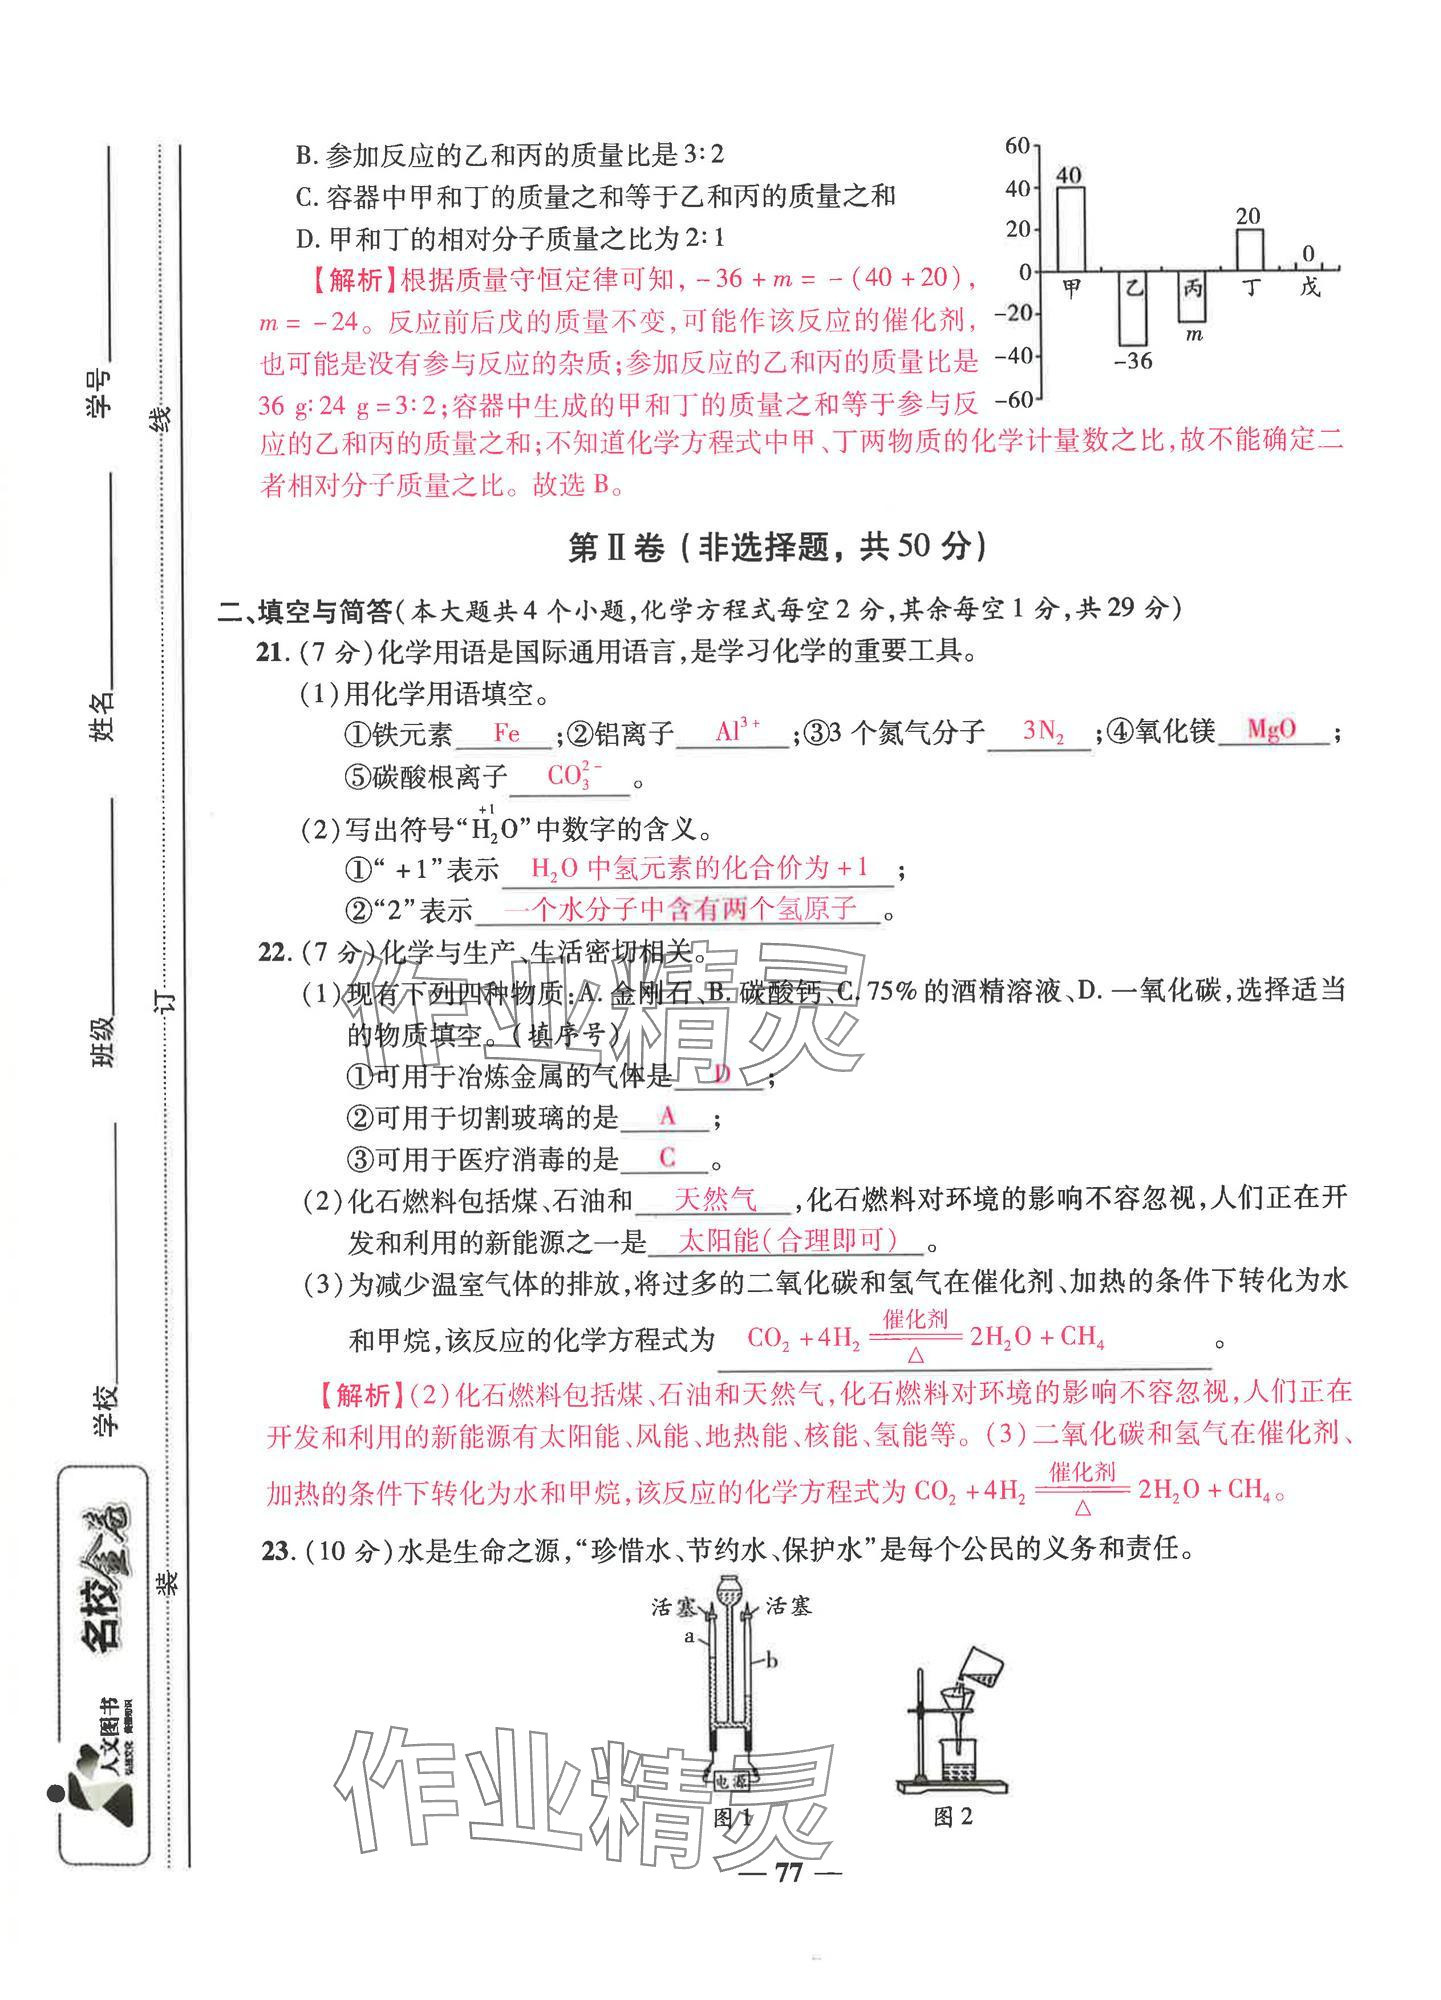 B. 参加反应的乙和丙的质量比是 3∶2
C. 容器中甲和丁的质量之和等于乙和丙的质量之和
D. 甲和丁的相对分子质量之比为 2∶1
60
40
20
0
-20
-40
-60
40
甲
乙
-36
丙
m
20
丁
0
戊
【解析】根据质量守恒定律可知，-36+m=-(40+20)，
m=-24。反应前后戊的质量不变，可能作该反应的催化剂，
也可能是没有参与反应的杂质；参加反应的乙和丙的质量比是
36 g∶24 g=3∶2；容器中生成的甲和丁的质量之和等于参与反
应的乙和丙的质量之和；不知道化学方程式中甲、丁两物质的化学计量数之比，故不能确定二
者相对分子质量之比。故选 B。
第Ⅱ卷（非选择题，共 50 分）
二、填空与简答（本大题共 4 个小题，化学方程式每空 2 分，其余每空 1 分，共 29 分）
21. (7 分)化学用语是国际通用语言，是学习化学的重要工具。
(1)用化学用语填空。
①铁元素 Fe ；②铝离子 Al³⁺ ；③3 个氮气分子 3N₂ ；④氧化镁 MgO ；
⑤碳酸根离子 CO₃²⁻ 。
+1
(2)写出符号“H₂O”中数字的含义。
①“ +1”表示 H₂O 中氢元素的化合价为+1 ；
②“2”表示 一个水分子中含有两个氢原子 。
22. (7 分)化学与生产、生活密切相关。
(1)现有下列四种物质：A. 金刚石、B. 碳酸钙、C. 75%的酒精溶液、D. 一氧化碳，选择适当
的物质填空。（填序号）
①可用于冶炼金属的气体是 D ；
②可用于切割玻璃的是 A ；
③可用于医疗消毒的是 C 。
(2)化石燃料包括煤、石油和 天然气 ，化石燃料对环境的影响不容忽视，人们正在开
发和利用的新能源之一是 太阳能（合理即可） 。
(3)为减少温室气体的排放，将过多的二氧化碳和氢气在催化剂、加热的条件下转化为水
催化剂
和甲烷，该反应的化学方程式为 CO₂+4H₂══2H₂O+CH₄ 。
△
【解析】(2)化石燃料包括煤、石油和天然气，化石燃料对环境的影响不容忽视，人们正在
开发和利用的新能源有太阳能、风能、地热能、核能、氢能等。(3)二氧化碳和氢气在催化剂、
催化剂
加热的条件下转化为水和甲烷，该反应的化学方程式为 CO₂+4H₂══2H₂O+CH₄。
△
23. (10 分)水是生命之源，“珍惜水、节约水、保护水”是每个公民的义务和责任。
活塞
活塞
a
b
电源
图 1
图 2
— 77 —
学号
姓名
班级
学校
线
订
装
名校金卷
人文图书
弘扬文化 传播知识
作业精灵
作业精灵